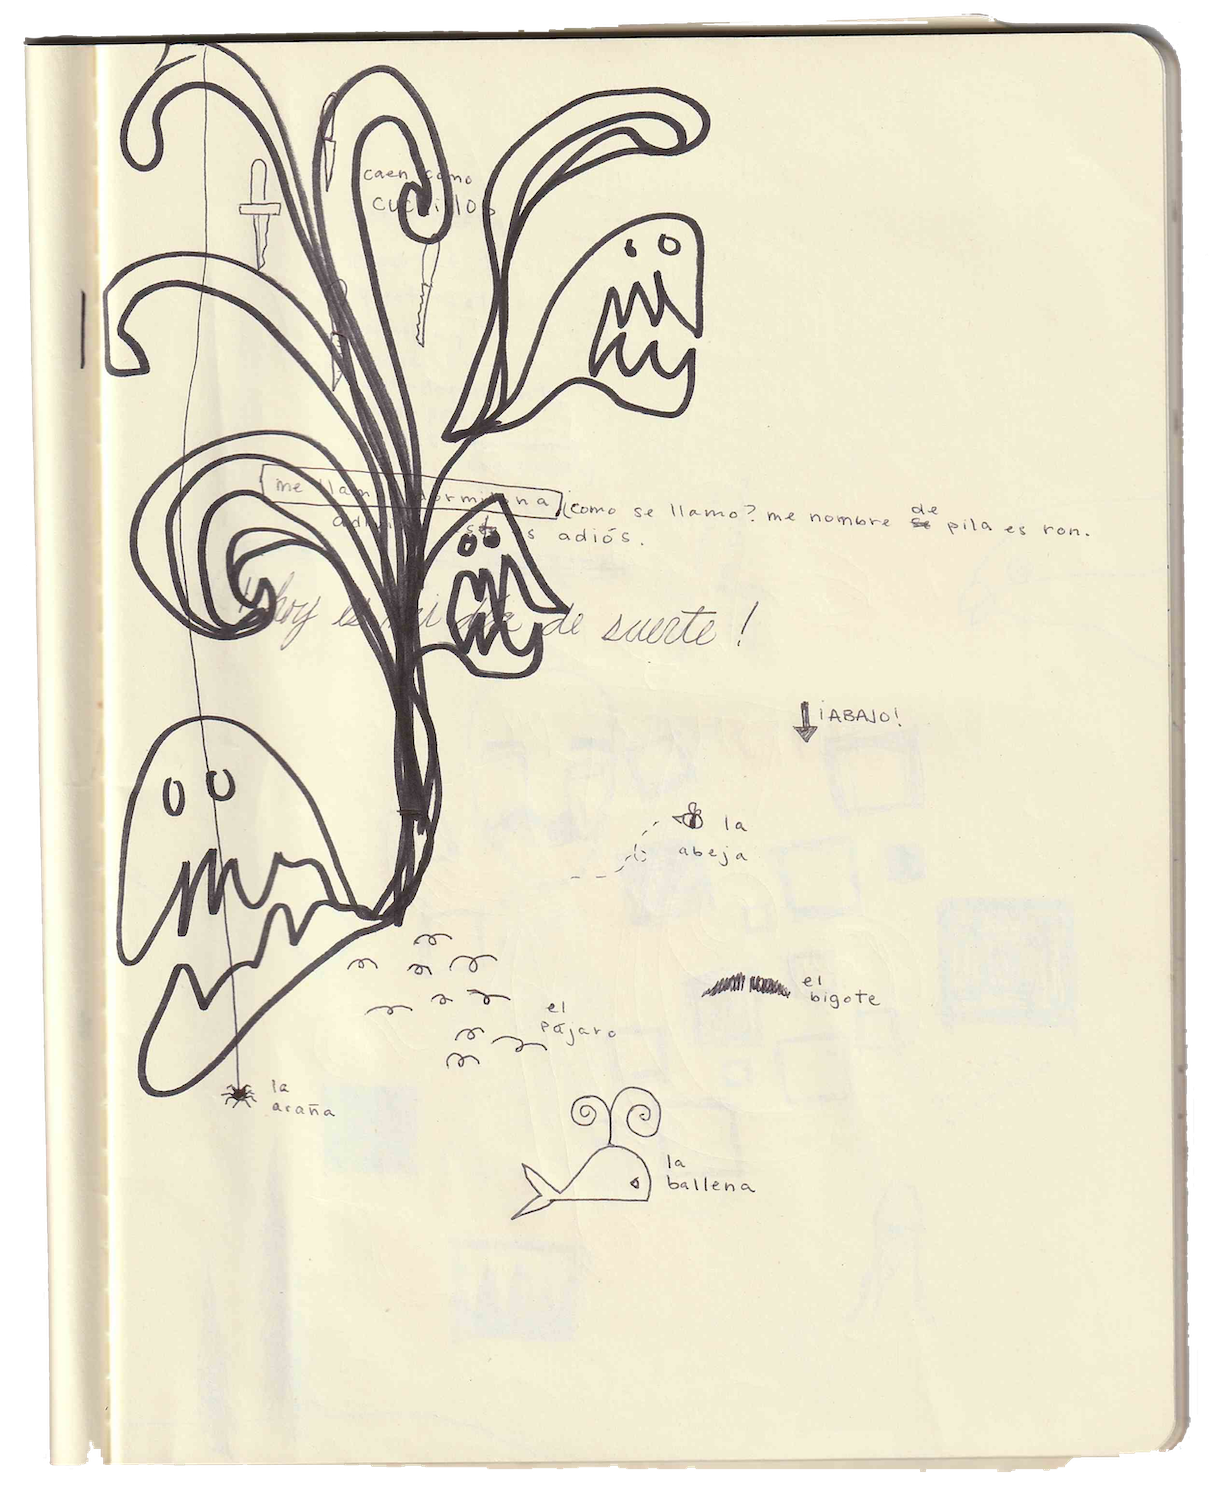 caen como
cuchillos
me llamo dormilona ¿como se llamo? me nombre de pila es ron.
adiós.
¡hoy es mi día de suerte!
¡ABAJO!
la
abeja
el
bigote
el
pájaro
la
araña
la
ballena